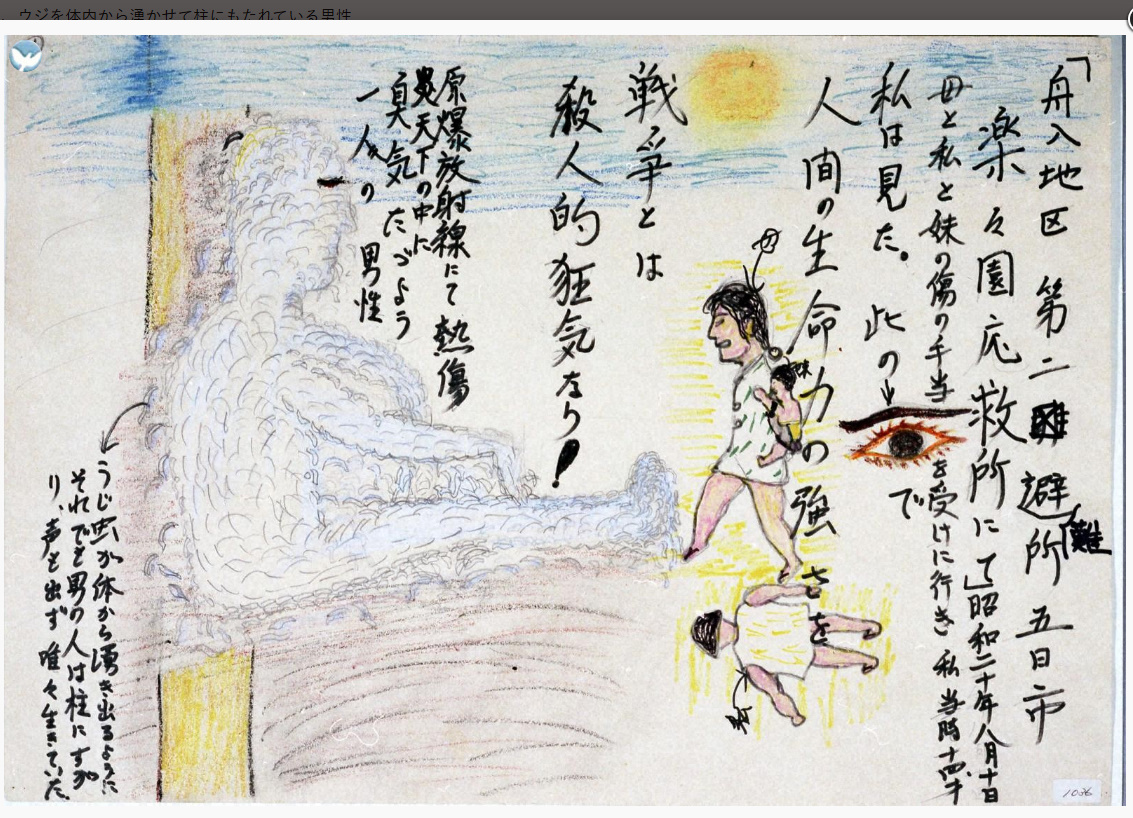 ウジを体内から湧かせて柱にもたれている男性
「舟入地区 第二避難所 五日市
楽々園応救所にて」昭和二十年八月十日
母と私と妹の傷の手当を受けに行き 私 当時十四才
私は見た。此の
で
人間の生命力の強さを
戦爭とは
殺人的狂気なり!
原爆放射線にて熱傷
炎天下の中に
真気たゞよう
一人の男性
母
妹
うじ虫が体から湧き出るように
それでも男の人は柱にすが
り、声を出ず 唯々生きていた。
1036